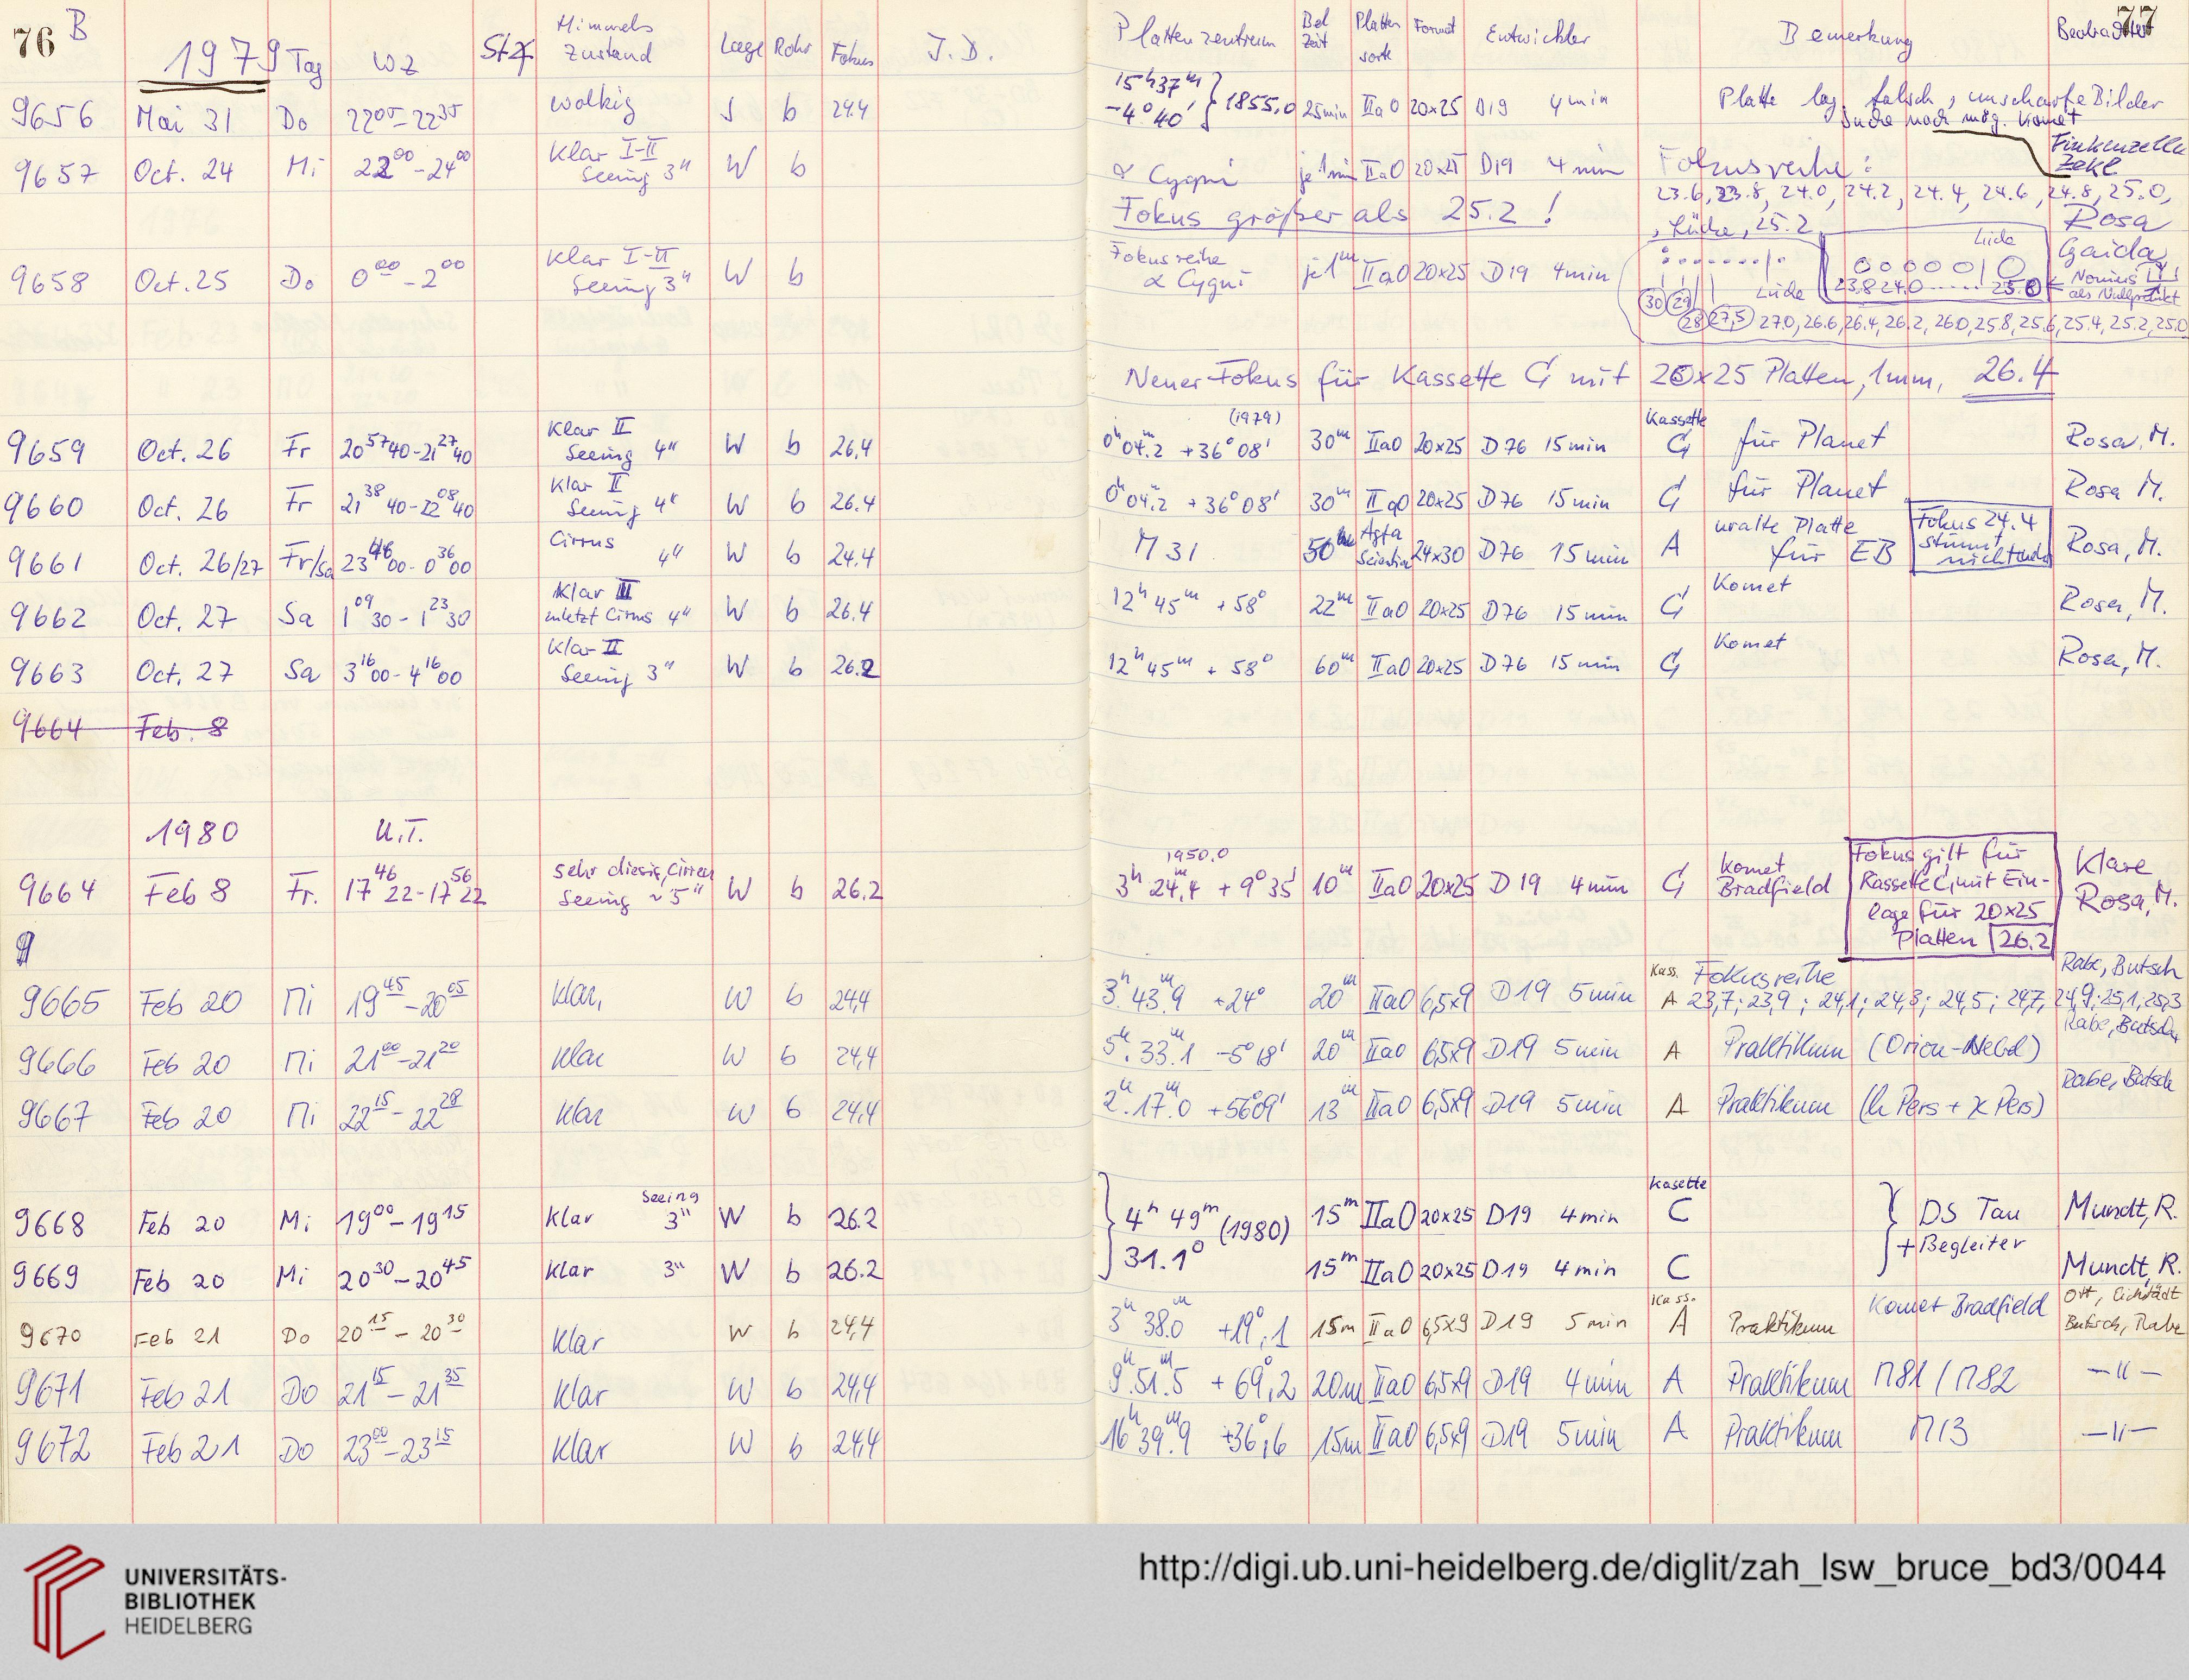 76 B
1979 Tag WZ Himmels Zustand Lage Rohr Fokus J.D. Plattenzentrum Bel Zeit Platten sorte Format Entwickler Bemerkung Beobachter 77
9656 Mai 31 Do 22⁰⁵-22³⁵ wolkig b 24.4 15ʰ37ᵐ -4°40' } 1855.0 25min IIaO 20x25 D19 4min Platte lag falsch, unscharfe Bilder
Suche nach mög. Komet
Finkenzeller
Zekl
9657 Oct. 24 Mi 22⁰⁰-24⁰⁰ Klar I-II Seeing 3" W b α Cygni je 1min IIaO 20x25 D19 4min Fokusreihe:
23.6, 23.8, 24.0, 24.2, 24.4, 24.6, 24.8, 25.0,
Fokus größer als 25.2! , Lücke, 25.2 Rosa
9658 Oct. 25 Do 0⁰⁰-2⁰⁰ Klar I-II Seeing 3" W b Fokusreihe α Cygni je 1ᵐ IIaO 20x25 D19 4min Gaida
Lücke
23.8 24.0 ..... 25.0 Nonius als Nullpunkt
Lücke
30 29 28 27,5 27.0, 26.6, 26.4, 26.2, 26.0, 25.8, 25.6, 25.4, 25.2, 25.0
Neuer Fokus für Kassette C mit 20x25 Platten, 1mm, 26.4
9659 Oct. 26 Fr 20⁵⁷40-21²⁷40 Klar II Seeing 4" W b 26.4 (1979) 0ʰ04ᵐ.2 +36°08' 30ᵐ IIaO 20x25 D76 15min Kassette C für Planet Rosa, M.
9660 Oct. 26 Fr 21³⁸40-22⁰⁸40 Klar II Seeing 4" W b 26.4 0ʰ04ᵐ.2 +36°08' 30ᵐ IIaO 20x25 D76 15min C für Planet Rosa M.
9661 Oct. 26/27 Fr/Sa 23⁴⁶00-0³⁶00 Cirrus 4" W b 24.4 M 31 50ᵐ Agfa Scientia 24x30 D76 15min A uralte Platte für EB Fokus 24.4 stimmt nicht mehr Rosa, M.
9662 Oct. 27 Sa 1⁰⁹30-1²³30 Klar II zuletzt Cirrus 4" W b 26.4 12ʰ45ᵐ +58° 22ᵐ IIaO 20x25 D76 15min C Komet Rosa, M.
9663 Oct. 27 Sa 3¹⁶00-4¹⁶00 Klar II Seeing 3" W b 26.2 12ʰ45ᵐ +58° 60ᵐ IIaO 20x25 D76 15min C Komet Rosa, M.
9664 Feb. 8
1980 U.T.
9664 Feb 8 Fr. 17⁴⁶22-17⁵⁶22 sehr diesig, Cirren Seeing ~5" W b 26.2 1950.0 3ʰ24ᵐ,4 +9°35' 10ᵐ IIaO 20x25 D19 4min C Komet Bradfield Klare Rosa, M.
Fokus gilt für
Kassette C, mit Ein-
lage für 20x25
Platten 26.2
9665 Feb 20 Mi 19⁴⁵-20⁰⁵ klar, W b 24,4 3ʰ.43ᵐ.9 +24° 20ᵐ IIaO 6,5x9 D19 5min Kass. A Fokusreihe Rabe, Butsch
23,7; 23,9; 24,1; 24,3; 24,5; 24,7, 24,9; 25,1, 25,3
9666 Feb 20 Mi 21⁰⁰-21²⁰ klar W b 24,4 5ʰ.33ᵐ.1 -5°18' 20ᵐ IIaO 6,5x9 D19 5min A Praktikum (Orion-Nebel) Rabe, Butsch
9667 Feb 20 Mi 22¹⁵-22²⁸ klar W b 24,4 2ʰ.17ᵐ.0 +56°09' 13ᵐ IIaO 6,5x9 D19 5min A Praktikum (h Pers + χ Pers) Rabe, Butsch
9668 Feb 20 Mi 19⁰⁰-19¹⁵ Klar Seeing 3" W b 26.2 } 4ʰ49ᵐ (1980) 15ᵐ IIaO 20x25 D19 4min Kasette C } DS Tau Mundt, R.
9669 Feb 20 Mi 20³⁰-20⁴⁵ Klar 3" W b 26.2 31.1° 15ᵐ IIaO 20x25 D19 4min C + Begleiter Mundt, R.
9670 Feb 21 Do 20¹⁵-20³⁰ klar W b 24,4 3ʰ38ᵐ.0 +19°,1 15m IIaO 6,5x9 D19 5min Kass. A Praktikum Komet Bradfield Ott, Eichstädt Butsch, Rabe
9671 Feb 21 Do 21¹⁵-21³⁵ klar W b 24,4 9ʰ.51ᵐ.5 +69°,2 20m IIaO 6,5x9 D19 4min A Praktikum M81/M82 -"-
9672 Feb 21 Do 23⁰⁰-23¹⁵ klar W b 24,4 16ʰ39ᵐ.9 +36°,6 15m IIaO 6,5x9 D19 5min A Praktikum M13 -"-
UNIVERSITÄTS-
BIBLIOTHEK
HEIDELBERG
http://digi.ub.uni-heidelberg.de/diglit/zah_lsw_bruce_bd3/0044